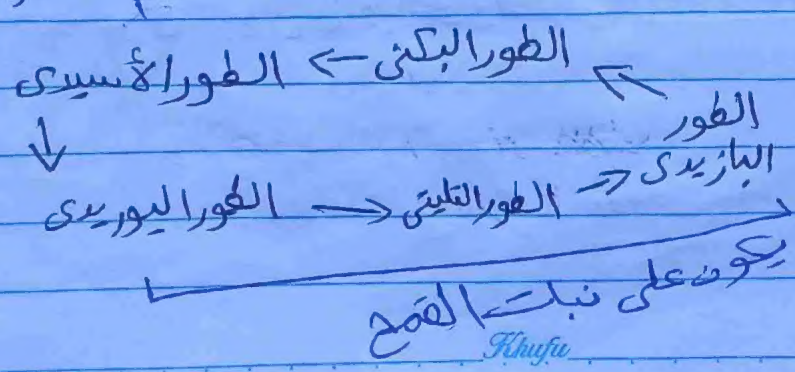 الطور البكنى -> الطور الأسيدى
الطور
البازيدى
الطور التليتى -> الطور اليوريدى
يكون على نبات القمح
Khufu